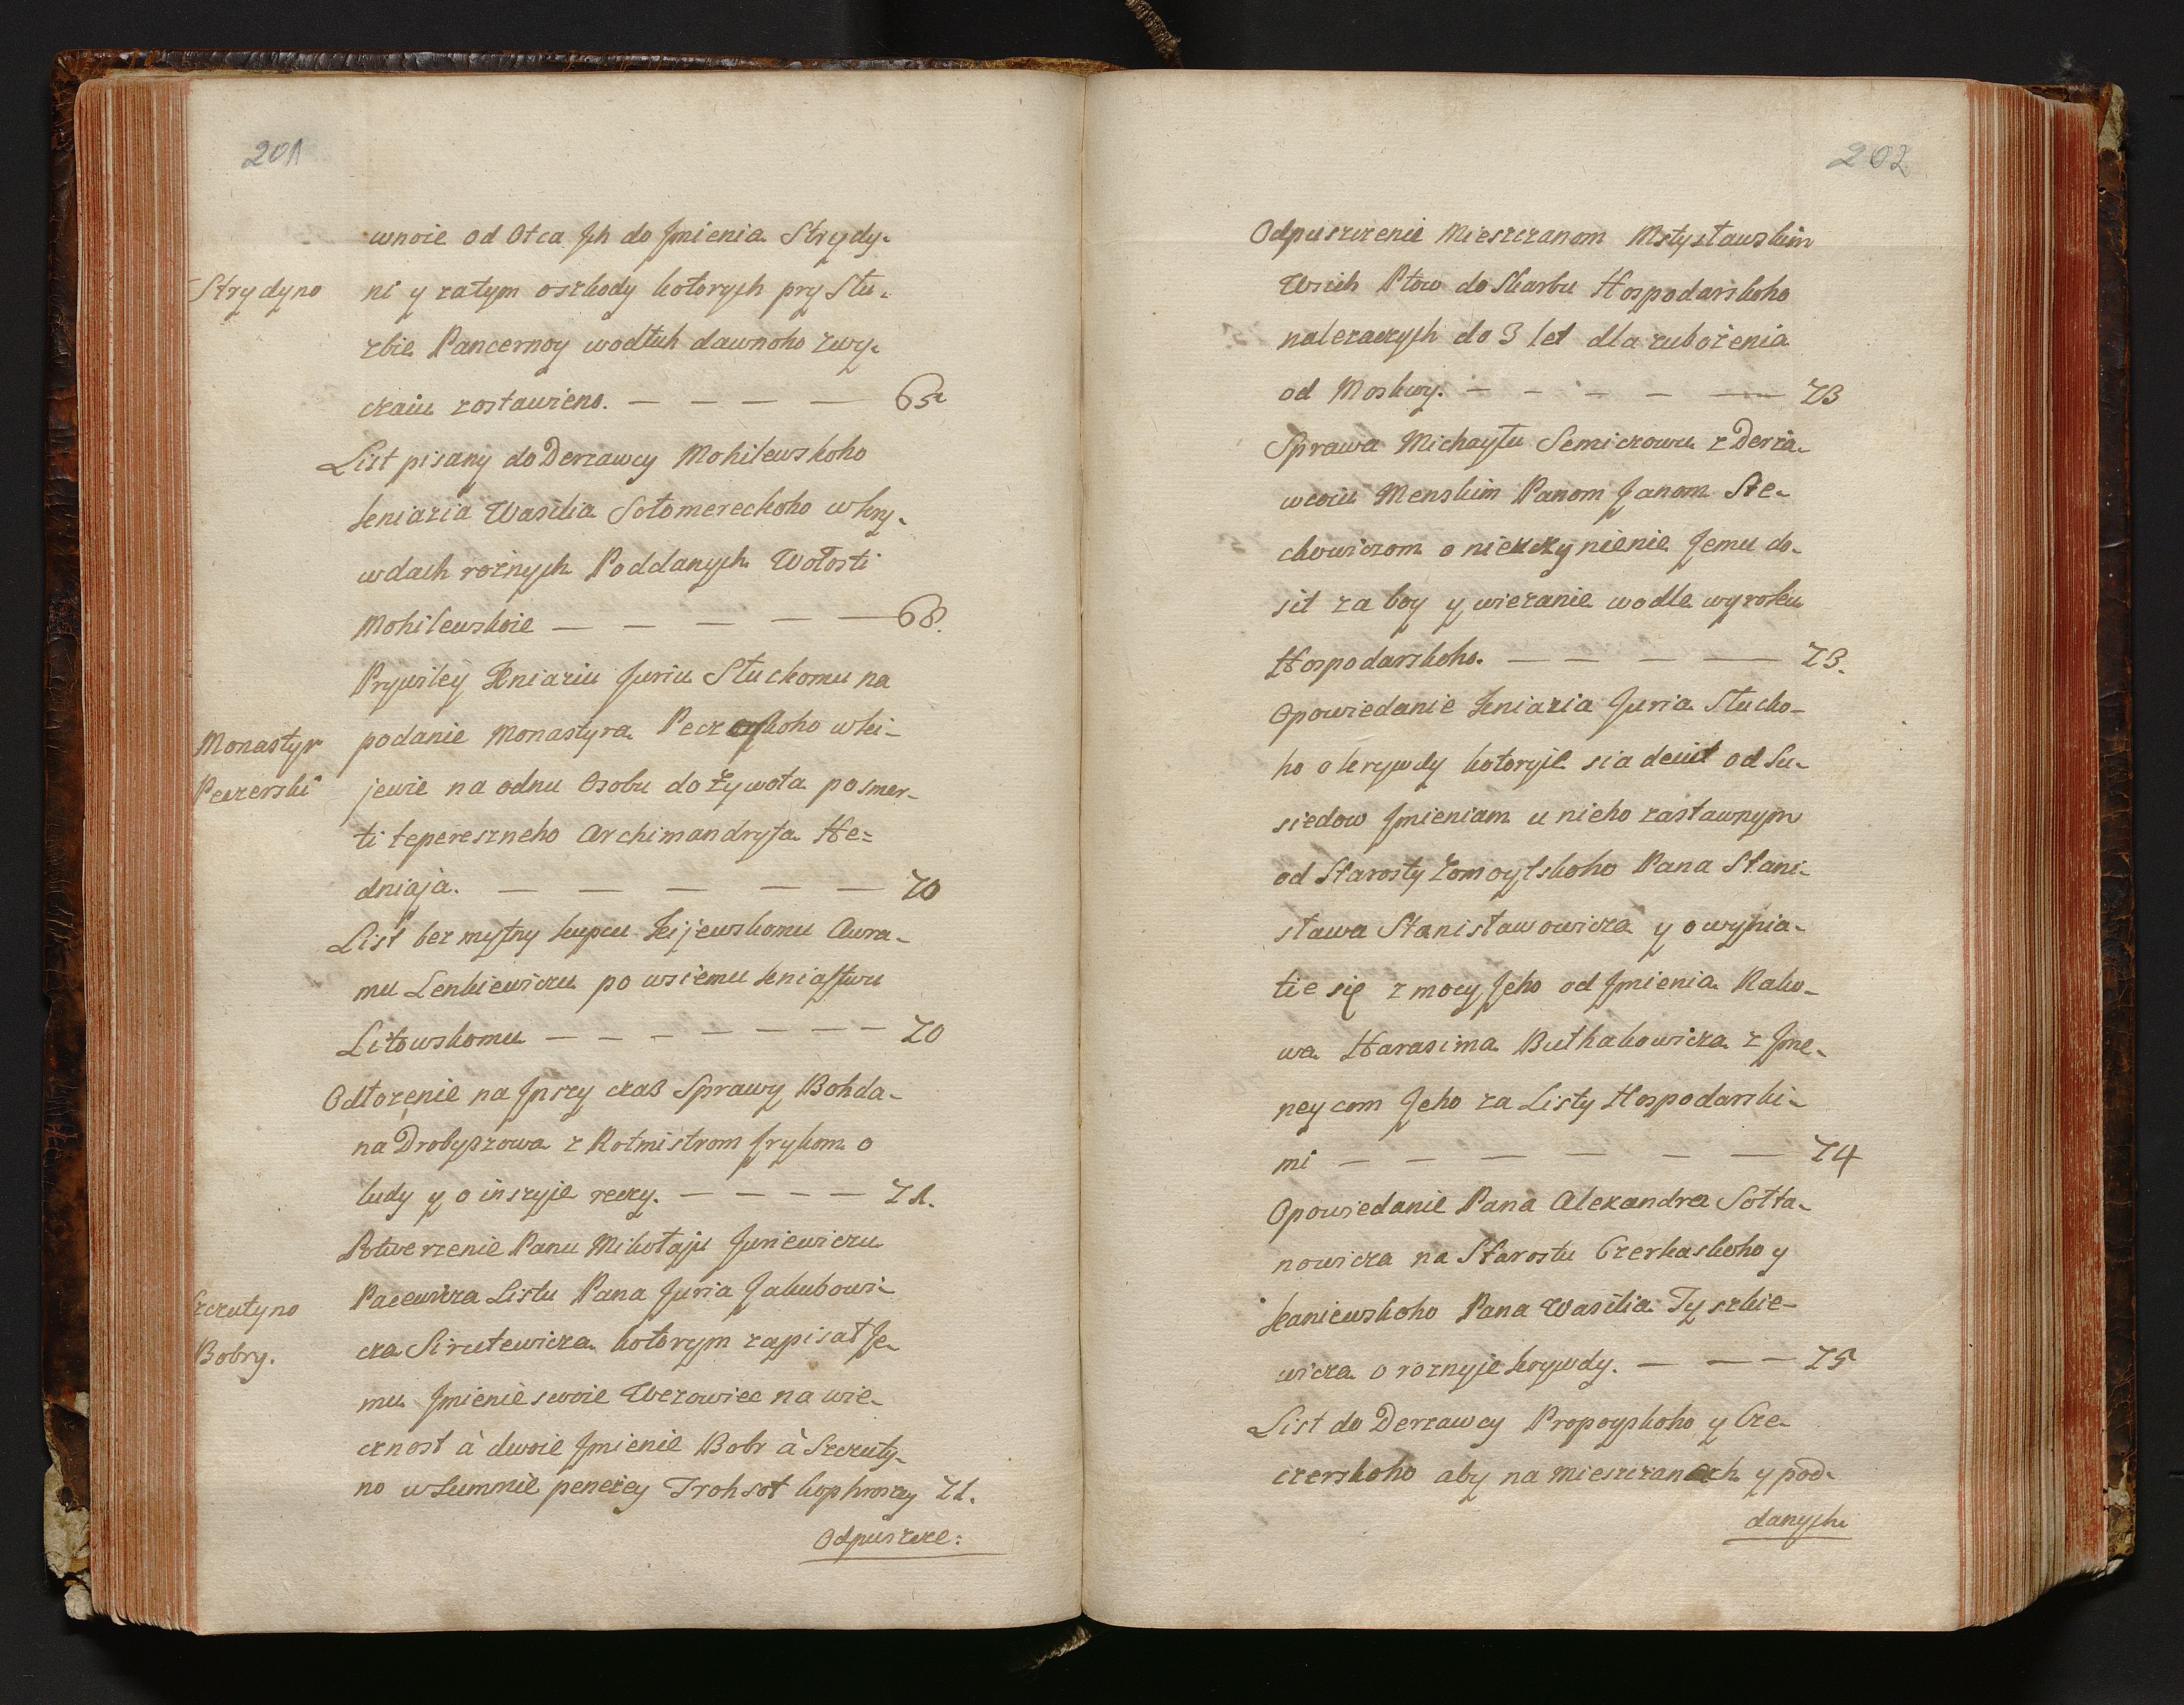 201
wnoie od Otca Jch do Jmienia Strydy-
Strydyno
ni y zatym oszkody kotorych pry Słu-
zbie Pancernoy wodłuh dawnoho zwy-
czaiu zostawieno. — — — — 65
List pisany do Derzawcy Mohilewskoho
kniazia Wasilia Sołomereckoho w kry-
wdach rożnych Poddanych Wołosti
Mohilewskoie — — — — — 68.
Prywiley Kniaziu Juriu Słuckomu na
Monastyr
Peczerski
podanie Monastyra Peczerskoho w Ki-
jewie na odnu Osobu do Żywota po smer-
ti tepereszneho Archimandryta He-
dniaja. — — — — — 70
List bez mytny kupcu Kijewskomu Awra-
mu Lenkiewiczu po wsiemu kniastwu
Litowskomu — — — — — — — 70
Odłożenie na Jnszy czas Sprawy Bohda-
na Drobyszowa z Rotmistrom Jrykom o
ludy y o inszyje reczy. — — — — 71.
Potwerzenie Panu Mikołaju Juriewiczu
Szczutyno
Bobry.
Pacewicza Listu Pana Juria Jakubowi-
cza Sirutewicza kotorym zapisał Je-
mu Jmienie swoie Wezowiec na wie-
cznost à dwoie Jmienie Bobr à Szczuty-
no w Summie penezey Trohsot kophroszy 71.
Odpuszcze:
202
Odpuszczenie Mieszczanom Mstysławskim
Wsich Płow do Skarbu Hospodarskoho
nalezaczych do 3 let dla zubożenia
od Moskwy. — — — — — 73
Sprawa Michayłu Semiczowu z Derża-
wcoiu Menskim Panom Janom Ste-
chowiczom o nieuczynienie Jemu do-
sit za boy y wiezanie wodle wyroku
Hospodarskoho. — — — — 73.
Opowiedanie Kniazia Juria Słucko-
ho o krywdy kotoryje sia dewt od Su-
siedow Jmieniam u nieho zastawnym
od Starosty Żomoytskoho Pana Stani-
sława Stanisławowicza y o wynia-
tie się z mocy Jeho od Jmienia Rako-
wa Harasima Buthakowicza z Jme-
ney com Jeho za Listy Hospodarski-
mi — — — — — — 74
Opowiedanie Pana Alexandra Sołta-
nowicza na Starostu Czerkaskoho y
Kaniewskoho Pana Wasilia Tyszkie-
wicza o roznyje krywdy. — — — 75
List do Derzawcy Propoyskoho y Cze-
czerskoho aby na mieszczanach y pod-
danych